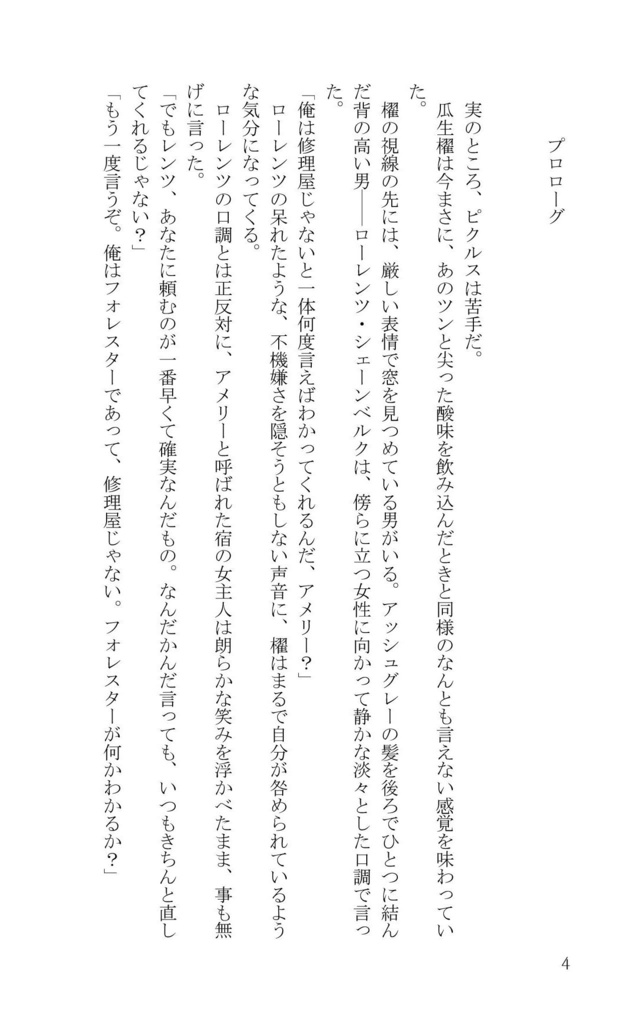 プロローグ
実のところ、ピクルスは苦手だ。
瓜生櫂は今まさに、あのツンと尖った酸味を飲み込んだときと同様のなんとも言えない感覚を味わってい
た。
櫂の視線の先には、厳しい表情で窓を見つめている男がいる。アッシュグレーの髪を後ろでひとつに結ん
だ背の高い男――ローレンツ・シェーンベルクは、傍らに立つ女性に向かって静かな淡々とした口調で言っ
た。
「俺は修理屋じゃないと一体何度言えばわかってくれるんだ、アメリー？」
ローレンツの呆れたような、不機嫌さを隠そうともしない声音に、櫂はまるで自分が咎められているよう
な気分になってくる。
ローレンツの口調とは正反対に、アメリーと呼ばれた宿の女主人は朗らかな笑みを浮かべたまま、事も無
げに言った。
「でもレンツ、あなたに頼むのが一番早くて確実なんだもの。なんだかんだ言っても、いつもきちんと直し
てくれるじゃない？」
「もう一度言うぞ。俺はフォレスターであって、修理屋じゃない。フォレスターが何かわかるか？」
4